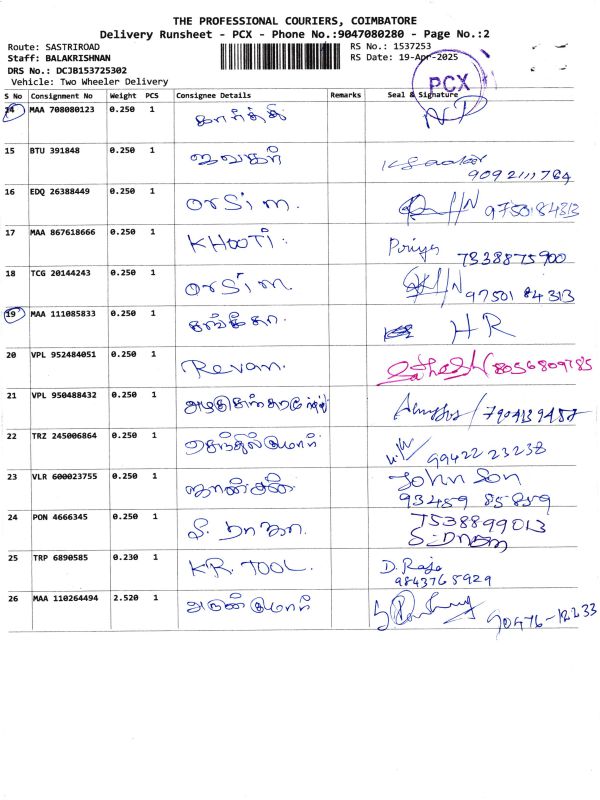 THE PROFESSIONAL COURIERS, COIMBATORE
Delivery Runsheet - PCX - Phone No.:9047080280 - Page No.:2
Route: SASTRIROAD RS No.: 1537253
Staff: BALAKRISHNAN RS Date: 19-Apr-2025
DRS No.: DCJB153725302
Vehicle: Two Wheeler Delivery
PCX
S No Consignment No Weight PCS Consignee Details Remarks Seal & Signature
14 MAA 708080123 0.250 1 கார்த்தி
15 BTU 391848 0.250 1 ஜவகர்
9092111764
16 EDQ 26388449 0.250 1 Orsim. 9750184313
17 MAA 867618666 0.250 1 KHOOTI. Piriya 7338875900
18 TCG 20144243 0.250 1 Orsim. 97501 84313
19 MAA 111085833 0.250 1 HR
20 VPL 952484051 0.250 1 Revan. Sathesh/8056809785
21 VPL 950488432 0.250 1
22 TRZ 245006864 0.250 1 செந்தில்குமார் 99422 23238
23 VLR 600023755 0.250 1 ஜான்சன் John Son
93459 85859
24 PON 4666345 0.250 1 7538899013
25 TRP 6890585 0.230 1 KR. TOOL. D. Raja
9843765929
26 MAA 110264494 2.520 1 அருண்குமார் 90476-12233